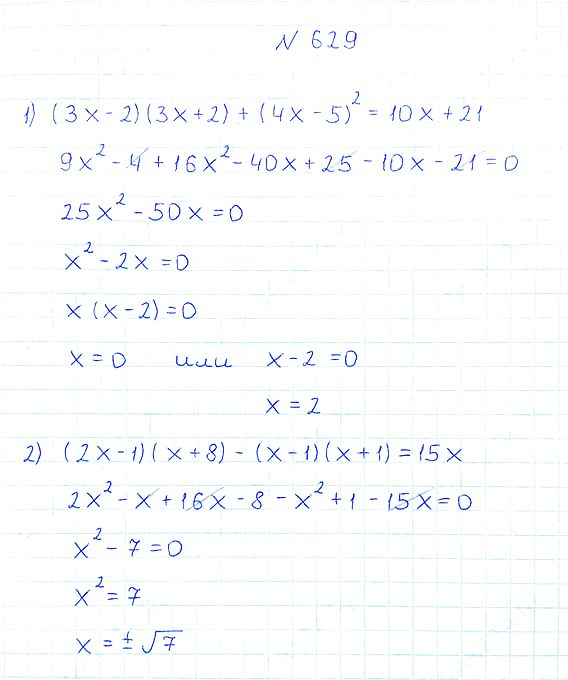 N 629
1) (3x-2)(3x+2) + (4x-5)² = 10x+21
9x² - 4 + 16x² - 40x + 25 - 10x - 21 = 0
25x² - 50x = 0
x² - 2x = 0
x (x-2) = 0
x = 0 или x-2 = 0
x = 2
2) (2x-1)(x+8) - (x-1)(x+1) = 15x
2x² - x + 16x - 8 - x² + 1 - 15x = 0
x² - 7 = 0
x² = 7
x = ± √7